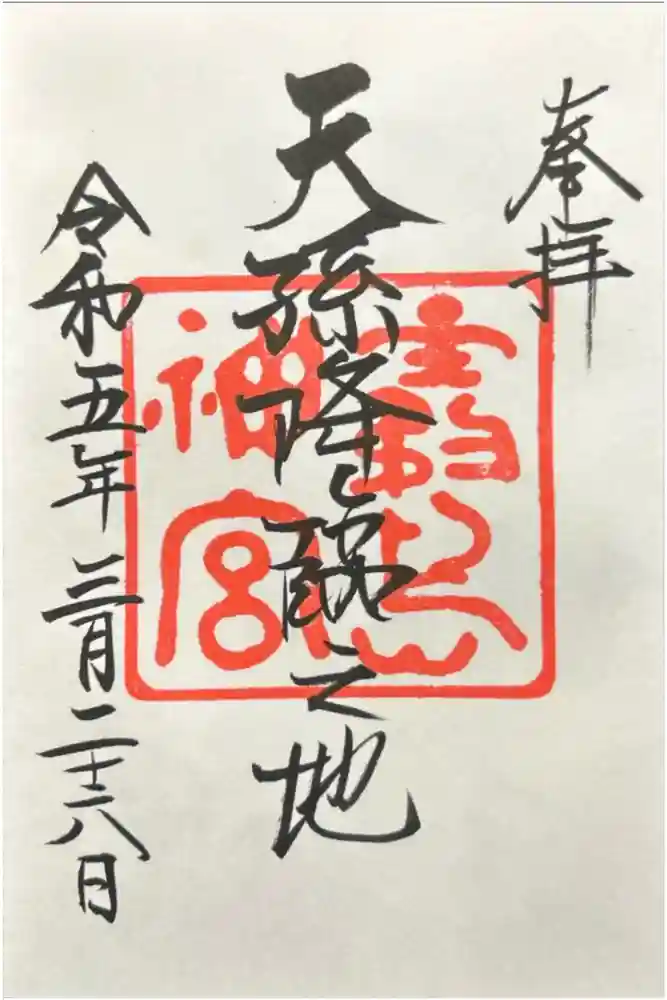 奉拝
天孫降臨之地
霧島神宮
令和五年三月二十六日